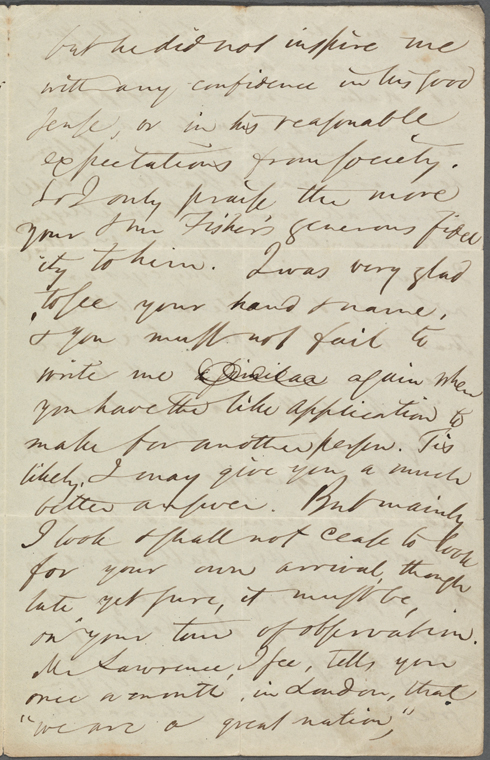 but he did not inspire me
with any confidence in his good
sense, or in his reasonable
expectations from society.
So I only praise the more
your & Mr Fisher's generous fidel
ity to him. I was very glad
to see your hand & name,
& you must not fail to
write me again when
you have the like application to
make for another person. 'Tis
likely, I may give you a much
better answer. But mainly
I look & shall not cease to look
for your own arrival, though
late yet sure, it must be,
on your tour of observation.
Mr Lawrence, I see, tells you
once a month, in London, that
"we are a great nation,"